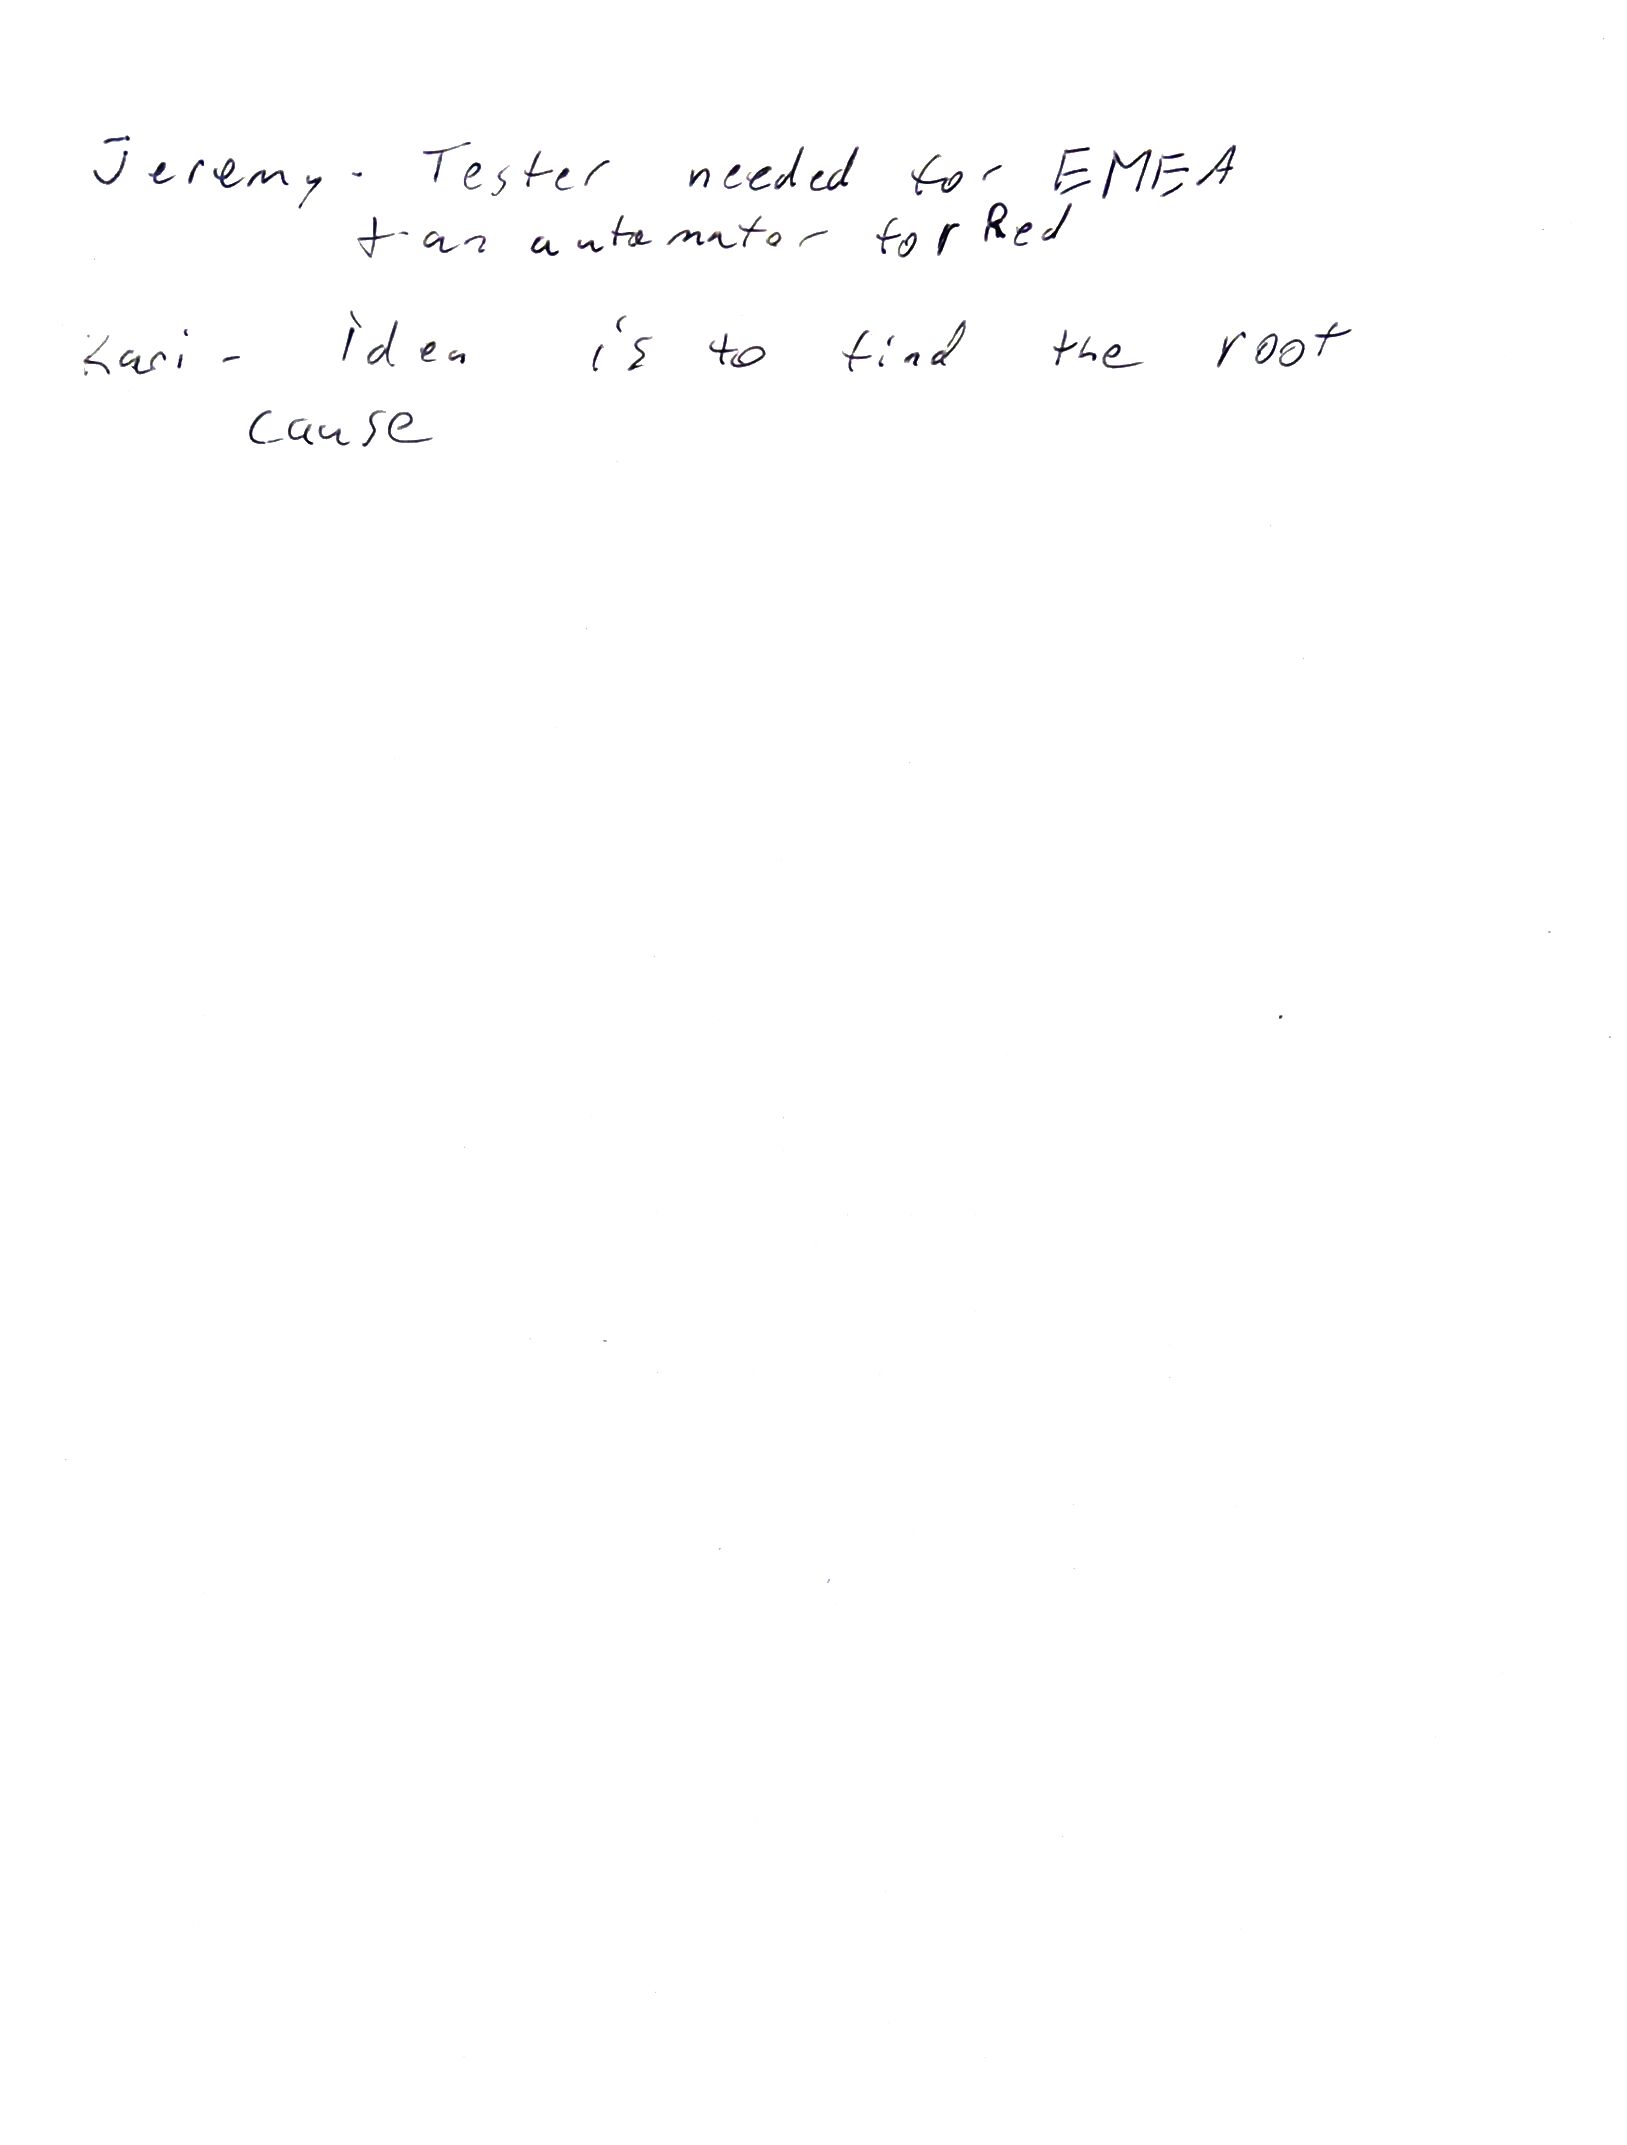 Jeremy - Tester needed for EMEA
+ an automator for Red
Kari - idea is to find the root
cause